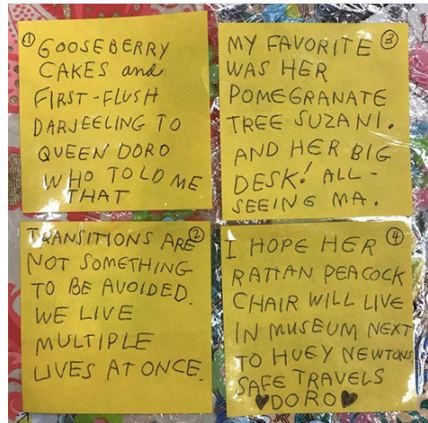 ①
GOOSEBERRY
CAKES and
FIRST-FLUSH
DARJEELING TO
QUEEN DORO
WHO TOLD ME
THAT
②
TRANSITIONS ARE
NOT SOMETHING
TO BE AVOIDED.
WE LIVE
MULTIPLE
LIVES AT ONCE.
③
MY FAVORITE
WAS HER
POMEGRANATE
TREE SUZANI.
AND HER BIG
DESK! ALL-
SEEING MA.
④
I HOPE HER
RATTAN PEACOCK
CHAIR WILL LIVE
IN MUSEUM NEXT
TO HUEY NEWTONS
SAFE TRAVELS
♥DORO♥